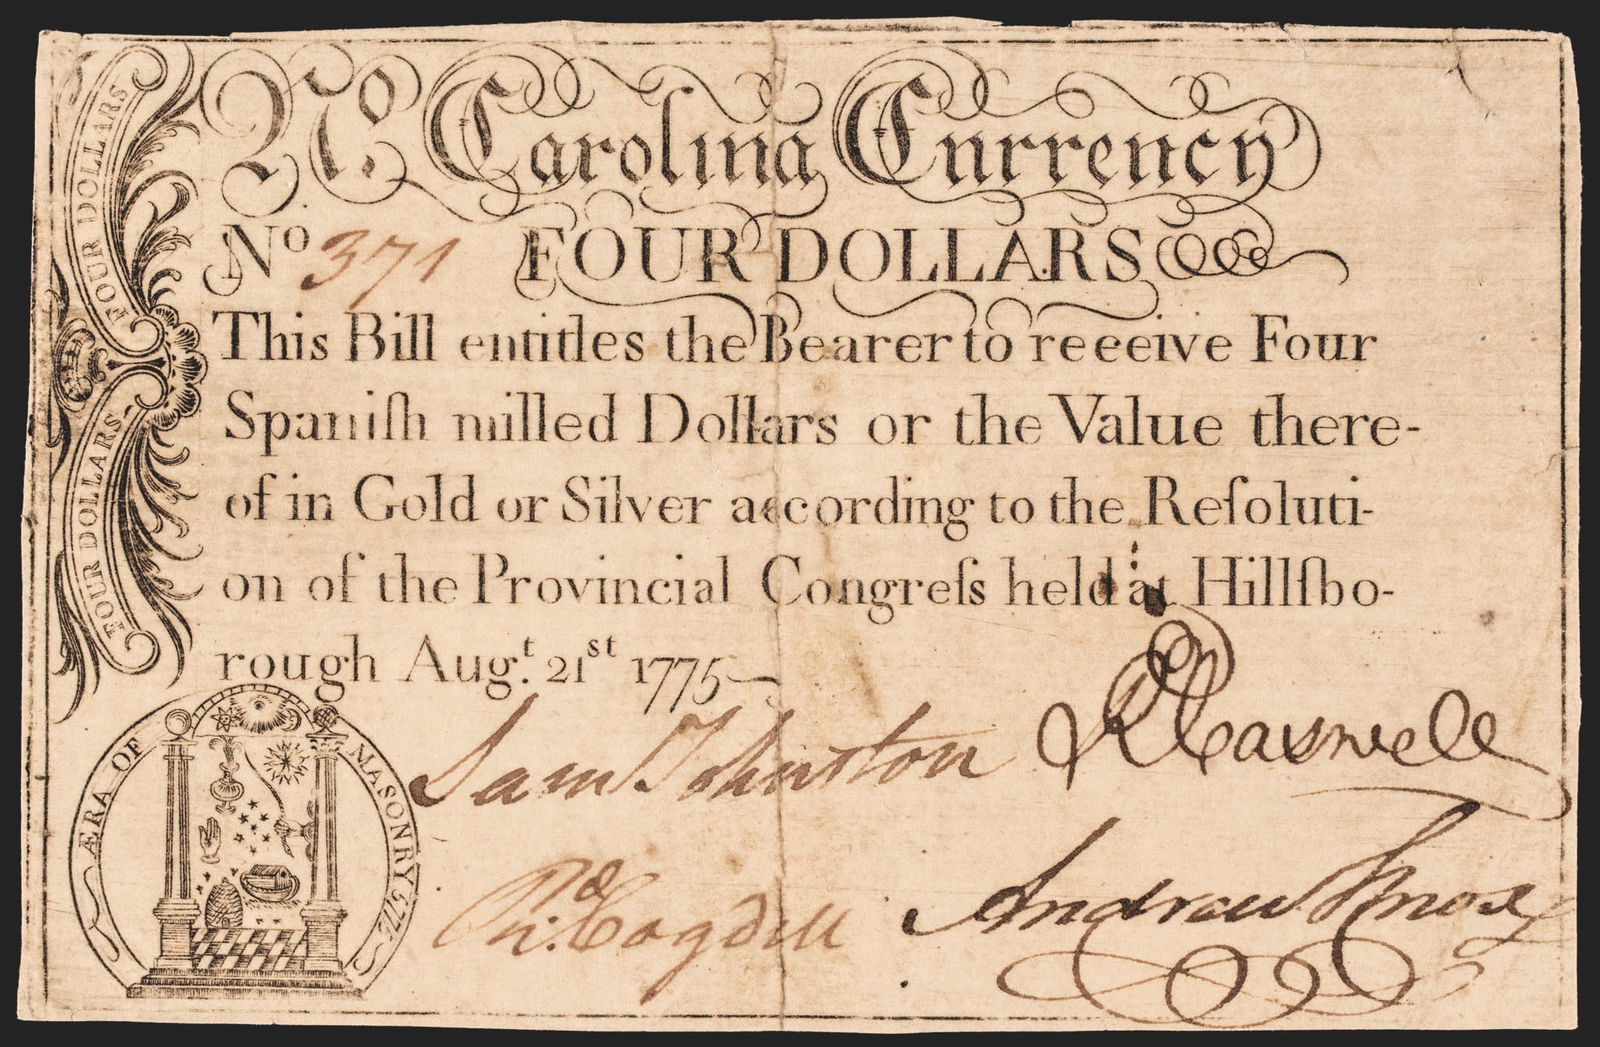 FOUR DOLLARS FOUR DOLLARS
FOUR DOLLARS FOUR DOLLARS
No. Carolina Currency
No 371 FOUR DOLLARS
This Bill entitles the Bearer to receeive Four
Spaniſh milled Dollars or the Value there-
of in Gold or Silver according to the Reſoluti-
on of the Provincial Congreſs held at Hillſbo-
rough Augt. 21st 1775
ÆRA OF MASONRY 5775
Sam Johnston
R Caswell
Rid. Cogdell
Andrew Knox